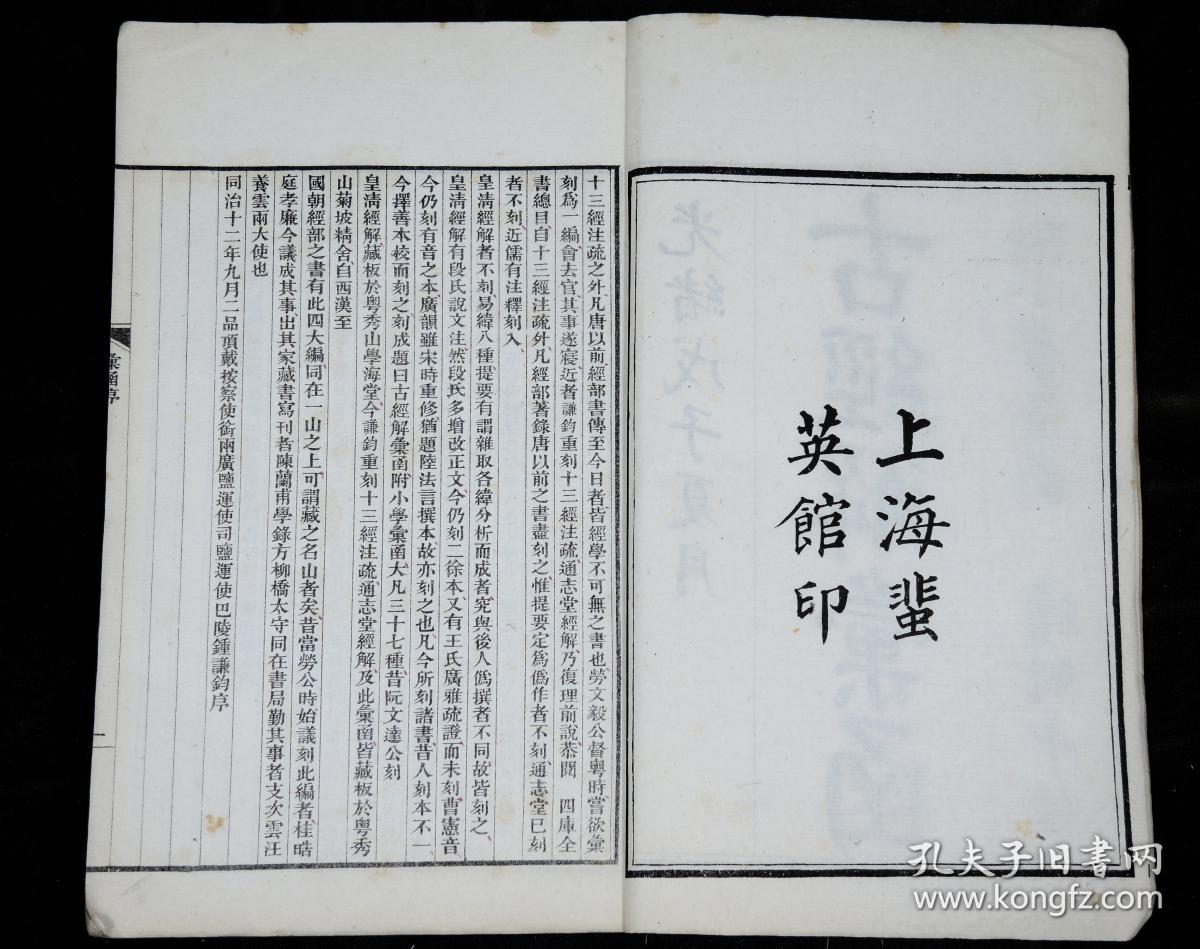 上海蜚
英館印
十三經注疏之外凡唐以前經部書傳至今日者皆經學不可無之書也勞文毅公督粵時嘗欲彙
刻爲一編會去官其事遂寢近者謙鈞重刻十三經注疏通志堂經解乃復理前說恭閱 四庫全
書總目自十三經注疏外凡經部著錄唐以前之書盡刻之惟提要定爲僞作者不刻通志堂已刻
者不刻近儒有注釋刻入
皇清經解者不刻易緯八種提要有謂雜取各緯分析而成者究與後人僞撰者不同故皆刻之
皇清經解有段氏說文注然段氏多增改正文今仍刻二徐本又有王氏廣雅疏證而未刻曹憲音
今仍刻有音之本廣韻雖宋時重修猶題陸法言撰本故亦刻之也凡今所刻諸書昔人刻本不一
今擇善本校而刻之刻成題曰古經解彙函附小學彙函大凡三十七種昔阮文達公刻
皇清經解藏板於粵秀山學海堂今謙鈞重刻十三經注疏通志堂經解及此彙函皆藏板於粵秀
山菊坡精舍自西漢至
國朝經部之書有此四大編同在一山之上可謂藏之名山者矣昔當勞公時始議刻此編者桂皓
庭孝廉今議成其事出其家藏書寫刊者陳蘭甫學錄方柳橋太守同在書局勤其事者支次雲汪
養雲兩大使也
同治十二年九月二品頂戴按察使銜兩廣鹽運使司鹽運使巴陵鍾謙鈞序
彙函序
一
光緒戊子夏月
孔夫子旧書网
www.kongfz.com